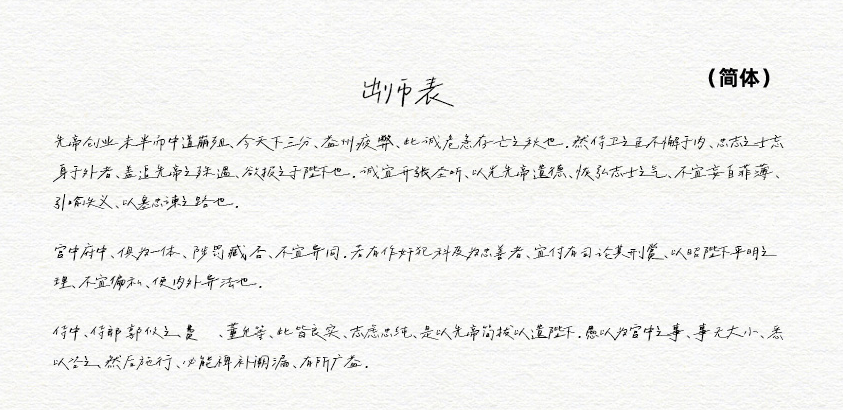 出师表
(简体)
先帝创业未半而中道崩殂、今天下三分、益州疲弊、此诚危急存亡之秋也.然侍卫之臣不懈于内、忠志之士忘
身于外者、盖追先帝之殊遇、欲报之于陛下也.诚宜开张圣听、以光先帝遗德、恢弘志士之气、不宜妄自菲薄、
引喻失义、以塞忠谏之路也.
宫中府中、俱为一体、陟罚臧否、不宜异同.若有作奸犯科及为忠善者、宜付有司论其刑赏、以昭陛下平明之
理、不宜偏私、使内外异法也.
侍中、侍郎郭攸之、费 、董允等、此皆良实、志虑忠纯、是以先帝简拔以遗陛下.愚以为宫中之事、事无大小、悉
以咨之、然后施行、必能裨补阙漏、有所广益.